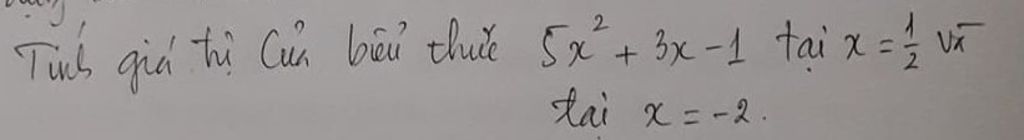 Tính giá trị của biểu thức 5x² + 3x - 1 tại x = 1/2 và
tại x = -2.